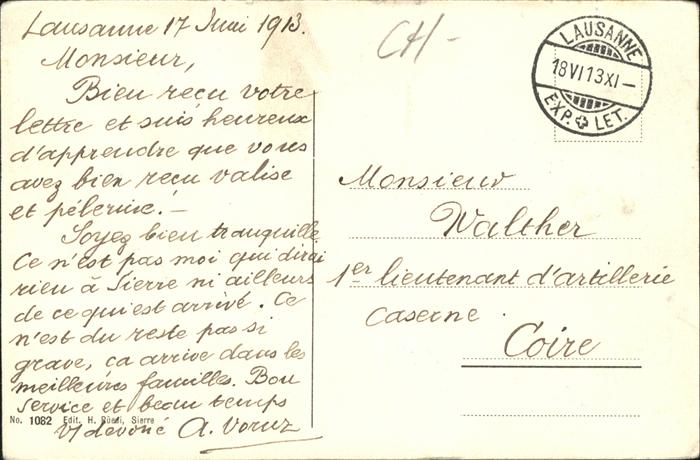 Lausanne 17 Juin 1913.
Monsieur,
Bien reçu votre
lettre et suis heureux
d'apprendre que vous
avez bien reçu valise
et pèlerine! —
Soyez bien tranquille.
Ce n'est pas moi qui dirai
rien à Sierre ni ailleurs
de ce qui est arrivé. Ce
n'est du reste pas si
grave, ca arrive dans les
meilleures familles. Bon
service et beau temps
No. 1082 Edit. H. Rüedi, Sierre
Vj devoué A. Voruz
CH-
LAUSANNE
18 VI 13 XI —
EXP. LET.
Monsieur
Walther
1er lieutenant d'artillerie
Caserne.
Coire